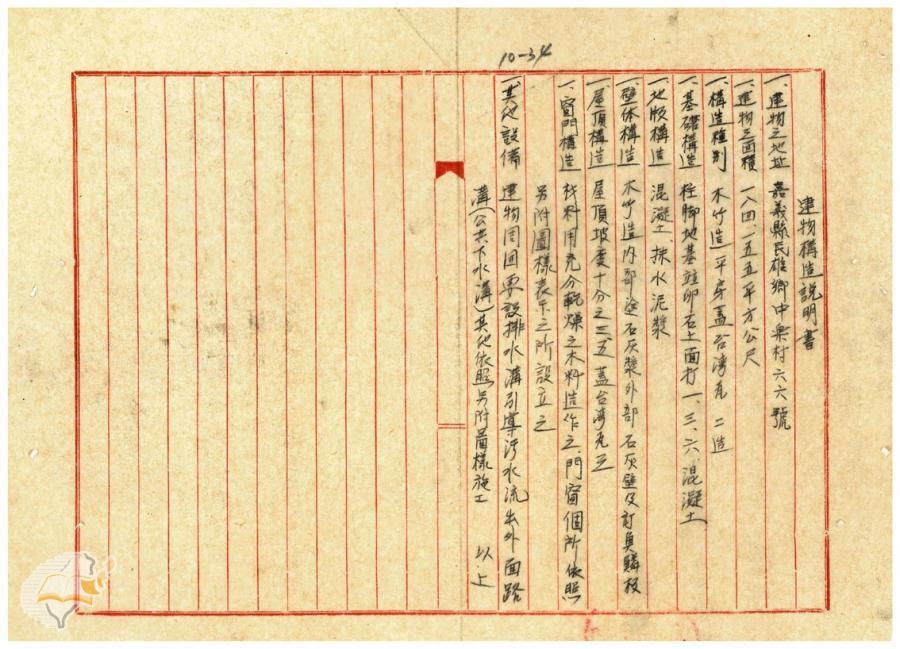 10-34
建物構造説明書
一、建物之地址 嘉義縣民雄鄉中樂村六六號
一、建物之面積 一八四、五五平方公尺
一、構造種別 木竹造平房蓋台湾瓦 二造
一、基礎構造 柱脚地基並卵石上面打一、三、六、混凝土
一、地版構造 混凝土、抹水泥漿
一、壁体構造 木竹造内部塗石灰漿外部石灰壁及訂魚鱗板
一、屋頂構造 屋頂坡度十分之三、五 蓋台湾瓦之
一、窗門構造 材料用充分乾燥之木料造作之、門窗個所依照
另附圖樣表示之所設立之
一、其他設備 建物周回要設排水溝引導汚水流出外面路
溝(公共下水溝)其他依照另附圖樣施工 以上